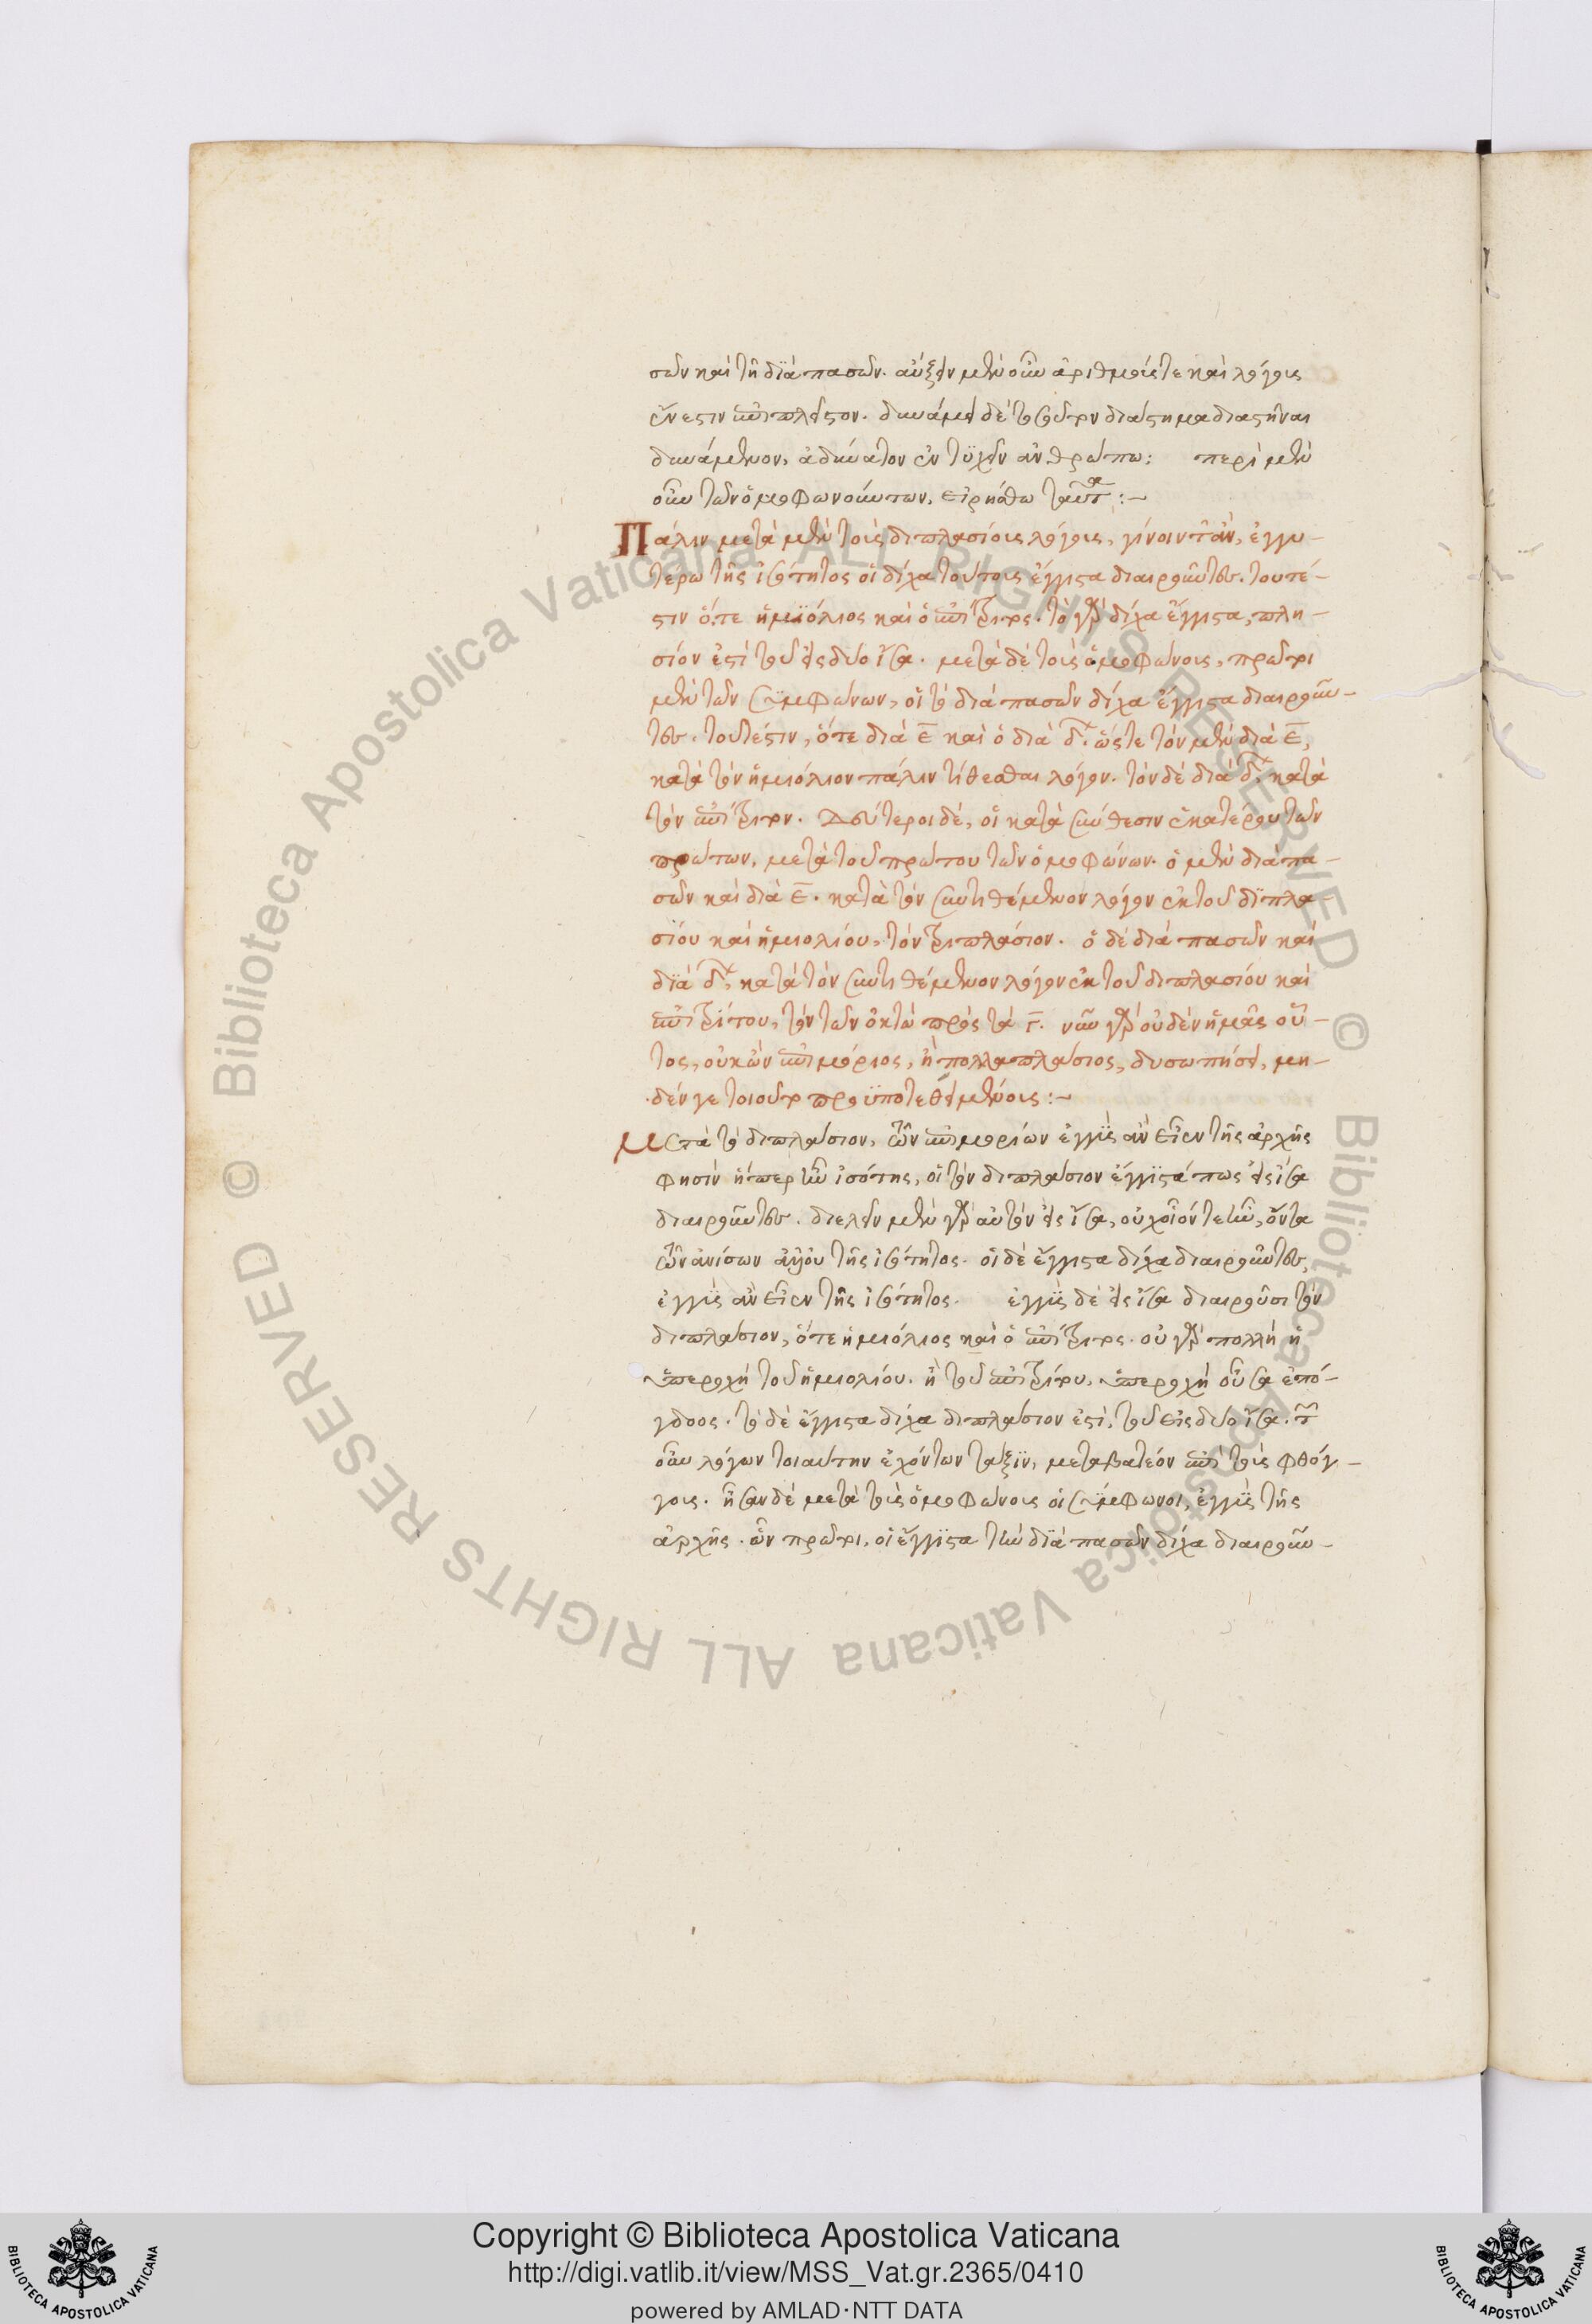 σῶν καὶ τῇ διὰ πασῶν. αὔξειν μὲν οὖν ἀριθμοῖς τε καὶ λόγοις
ἔνεστιν ἐπιπλεῖστον. δυνάμει δὲ τοσοῦτον διάστημα διαστῆναι
δυνάμενον, ἀδύνατον ἐντυχεῖν ἀνθρώπω: περὶ μὲν
οὖν τῶν ὁμοφωνούντων, εἰρήσθω ταῦτα :~
Πάλιν μετὰ μὲν τοὺς διπλασίους λόγους, γίνοιντ' ἂν, ἐγγυ-
τέρω τῆς ἰσότητος οἱ δίχα τούτους ἔγγιστα διαιροῦντες. τουτέ-
στιν ὅ, τε ἡμιόλιος καὶ ὁ ἐπίτριτος. τὸ γὰρ δίχα ἔγγιστα, πλη-
σίον ἐστὶ τοῦ εἰς δύο ἴσα. μετὰ δὲ τοὺς ὁμοφώνους, πρῶτοι
μὲν τῶν συμφώνων, οἱ τὸ διὰ πασῶν δίχα ἔγγιστα διαιροῦν-
τες. τουτέστιν, ὅ τε διὰ ε̄ καὶ ὁ διὰ δ̄. ὥστε τὸν μὲν διὰ ε̄,
κατὰ τὸν ἡμιόλιον πάλιν τίθεσθαι λόγον. τὸν δὲ διὰ δ̄, κατὰ
τὸν ἐπίτριτον. Δεύτεροι δὲ, οἱ κατὰ σύνθεσιν ἑκατέρου τῶν
πρώτων, μετὰ τοῦ πρώτου τῶν ὁμοφώνων. ὁ μὲν διὰ πα-
σῶν καὶ διὰ ε̄. κατὰ τὸν συντιθέμενον λόγον ἐκ τοῦ διπλα-
σίου καὶ ἡμιολίου, τὸν τριπλάσιον. ὁ δὲ διὰ πασῶν καὶ
διὰ δ̄, κατὰ τὸν συντιθέμενον λόγον ἐκ τοῦ διπλασίου καὶ
ἐπιτρίτου, τὸν τῶν ὀκτὼ πρὸς τὰ γ̄. νῦν γὰρ οὐδὲν ἡμᾶς οὗ-
τος, οὐκ ὢν ἐπιμόριος, ἢ πολλαπλάσιος, δυσωπήσει, μη-
δέν γε τοιοῦτο προϋποτεθειμένους :~
Μετὰ τὸ διπλάσιον, τῶν ἐπιμορίων ἐγγὺς ἂν εἶεν τῆς ἀρχῆς
φησὶν ἥπερ ἦν ἰσότης, οἱ τὸν διπλάσιον ἔγγιστά πως εἰς ἴσα
διαιροῦντες. διελεῖν μὲν γὰρ αὐτὸν εἰς ἴσα, οὐχ οἷόν τε ἦν, ὄντα
τῶν ἀνίσων ἀλλ' οὐ τῆς ἰσότητος. οἱ δὲ ἔγγιστα δίχα διαιροῦντες,
ἐγγὺς ἂν εἶεν τῆς ἰσότητος. ἐγγὺς δὲ εἰς ἴσα διαιροῦσι τὸν
διπλάσιον, ὅ τε ἡμιόλιος καὶ ὁ ἐπίτριτος. οὐ γὰρ πολλὴ ἡ
ὑπεροχὴ τοῦ ἡμιολίου. ἢ τοῦ ἐπιτρίτου, ὑπεροχὴ οὖσα ἐπό-
γδοος. τὸ δὲ ἔγγιστα δίχα διπλάσιον ἐστὶ, τοῦ εἰς δύο ἴσα. τῶν
οὖν λόγων τοιαύτην ἐχόντων τάξιν, μεταβατέον ἐπὶ τοὺς φθόγ-
γους. ἦσαν δὲ μετὰ τοὺς ὁμοφώνους οἱ σύμφωνοι, ἐγγὺς τῆς
ἀρχῆς. ὧν πρῶτοι, οἱ ἔγγιστα τὴν διὰ πασῶν δίχα διαιροῦν-
Biblioteca Apostolica Vaticana ALL RIGHTS RESERVED ©
Biblioteca Apostolica Vaticana ALL RIGHTS RESERVED ©
Copyright © Biblioteca Apostolica Vaticana
http://digi.vatlib.it/view/MSS_Vat.gr.2365/0410
powered by AMLAD·NTT DATA
BIBLIOTECA APOSTOLICA VATICANA
BIBLIOTECA APOSTOLICA VATICANA